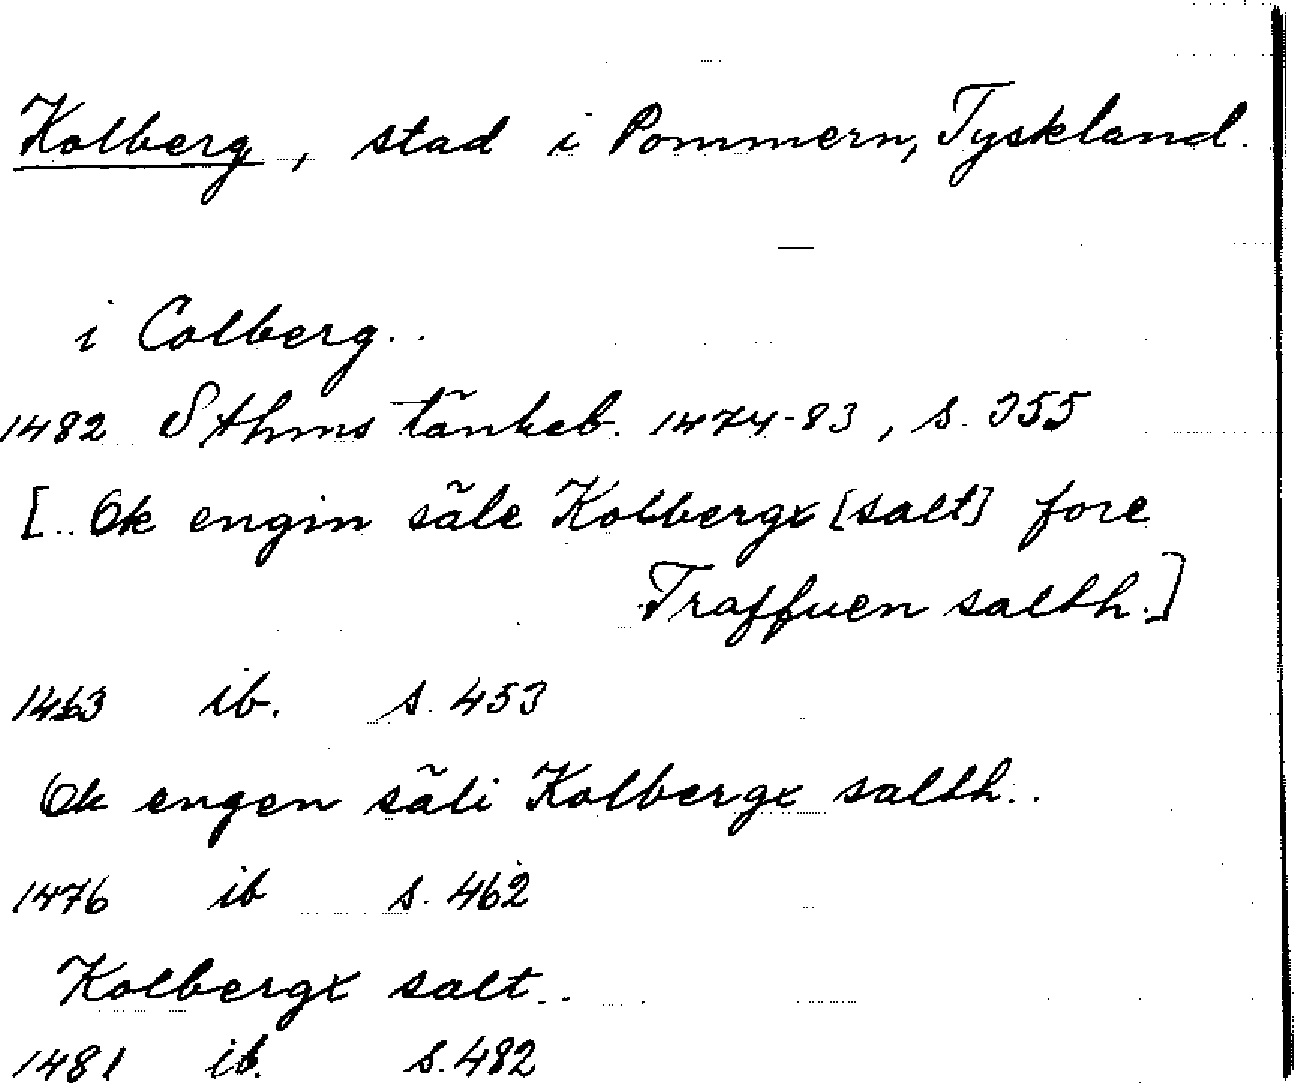 Kolberg, stad i Pommern, Tyskland.
i Colberg..
1482 Sthms tänkeb. 1474-83, s. 355
[.. Ok engin säle Kolbergx [salt] fore
Traffuen salth.]
1463 ib. s. 453
Ok engen säli Kolbergx salth..
1476 ib s. 462
Kolbergx salt..
1481 ib. s. 482